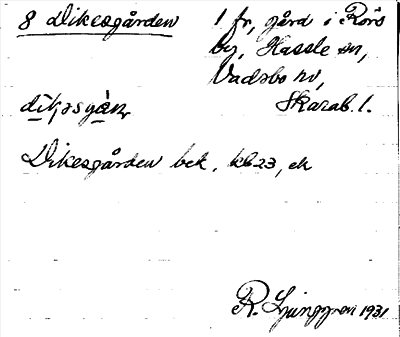 8 Dikesgården 1 fr, gård i Rörs
by, Hassle sn,
Vadsbo hd,
Skarab. l.
Dikesgården bek. kb 23, ek
R. Ljunggren 1931